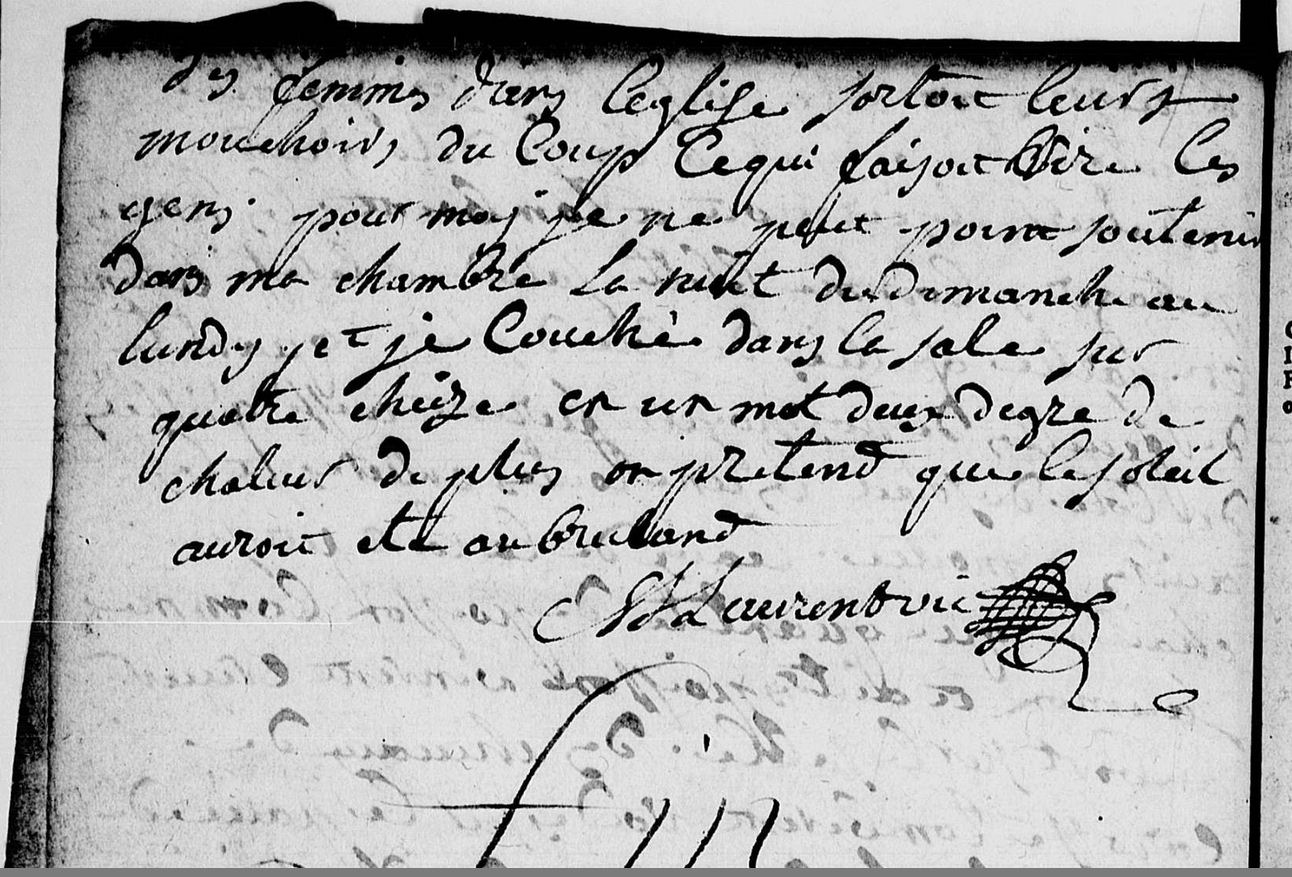 des femmes dans leglise sortoit leurs
mouchoirs du Coup Ce qui faisoit Rire les
gens pour moy je ne peut point soutenir
dans ma chambre La nuit du dimanche au
lundy et je Couché dans la sale sur
quatre cheize en un mot deux degre de
chaleur de plus on pretend que le soleil
auroit ete au bruland
Laurent vic
fin